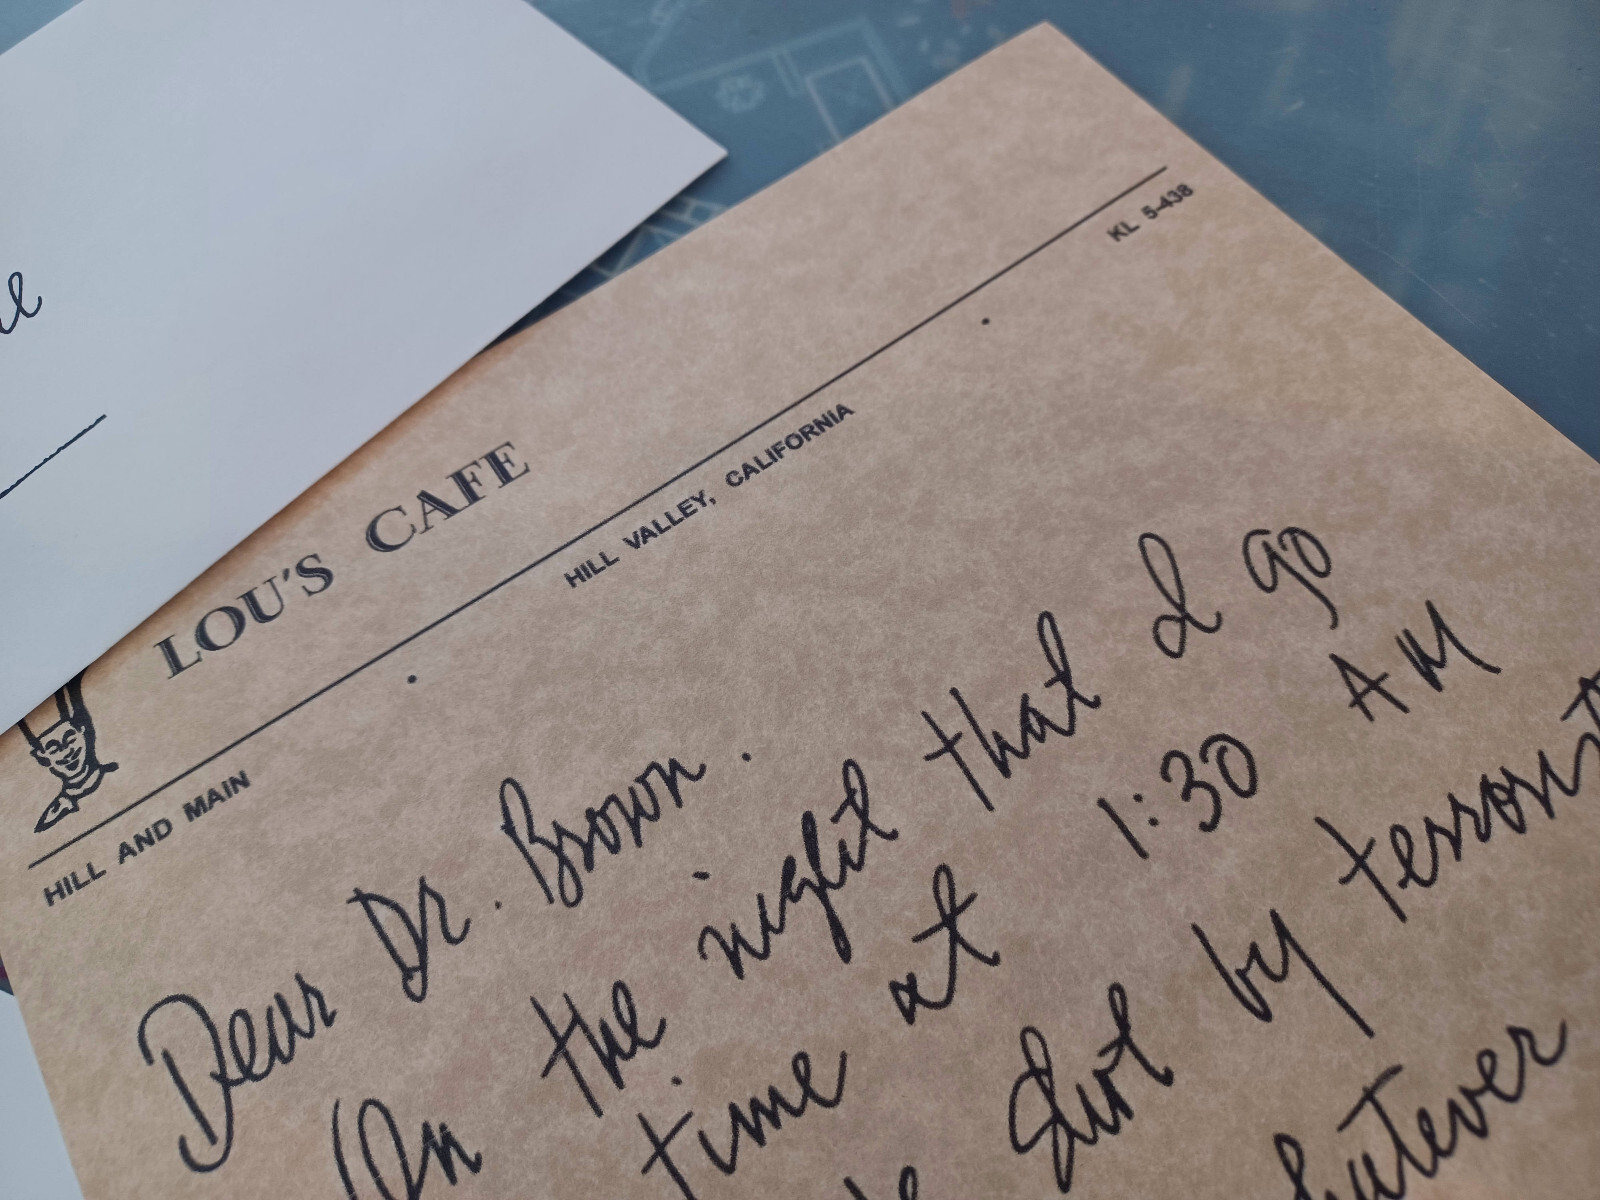 LOU'S CAFE
HILL AND MAIN • HILL VALLEY, CALIFORNIA • KL 5-438
Dear Dr. Brown.
On the night that I go
time at 1:30 AM
shot by terrorist